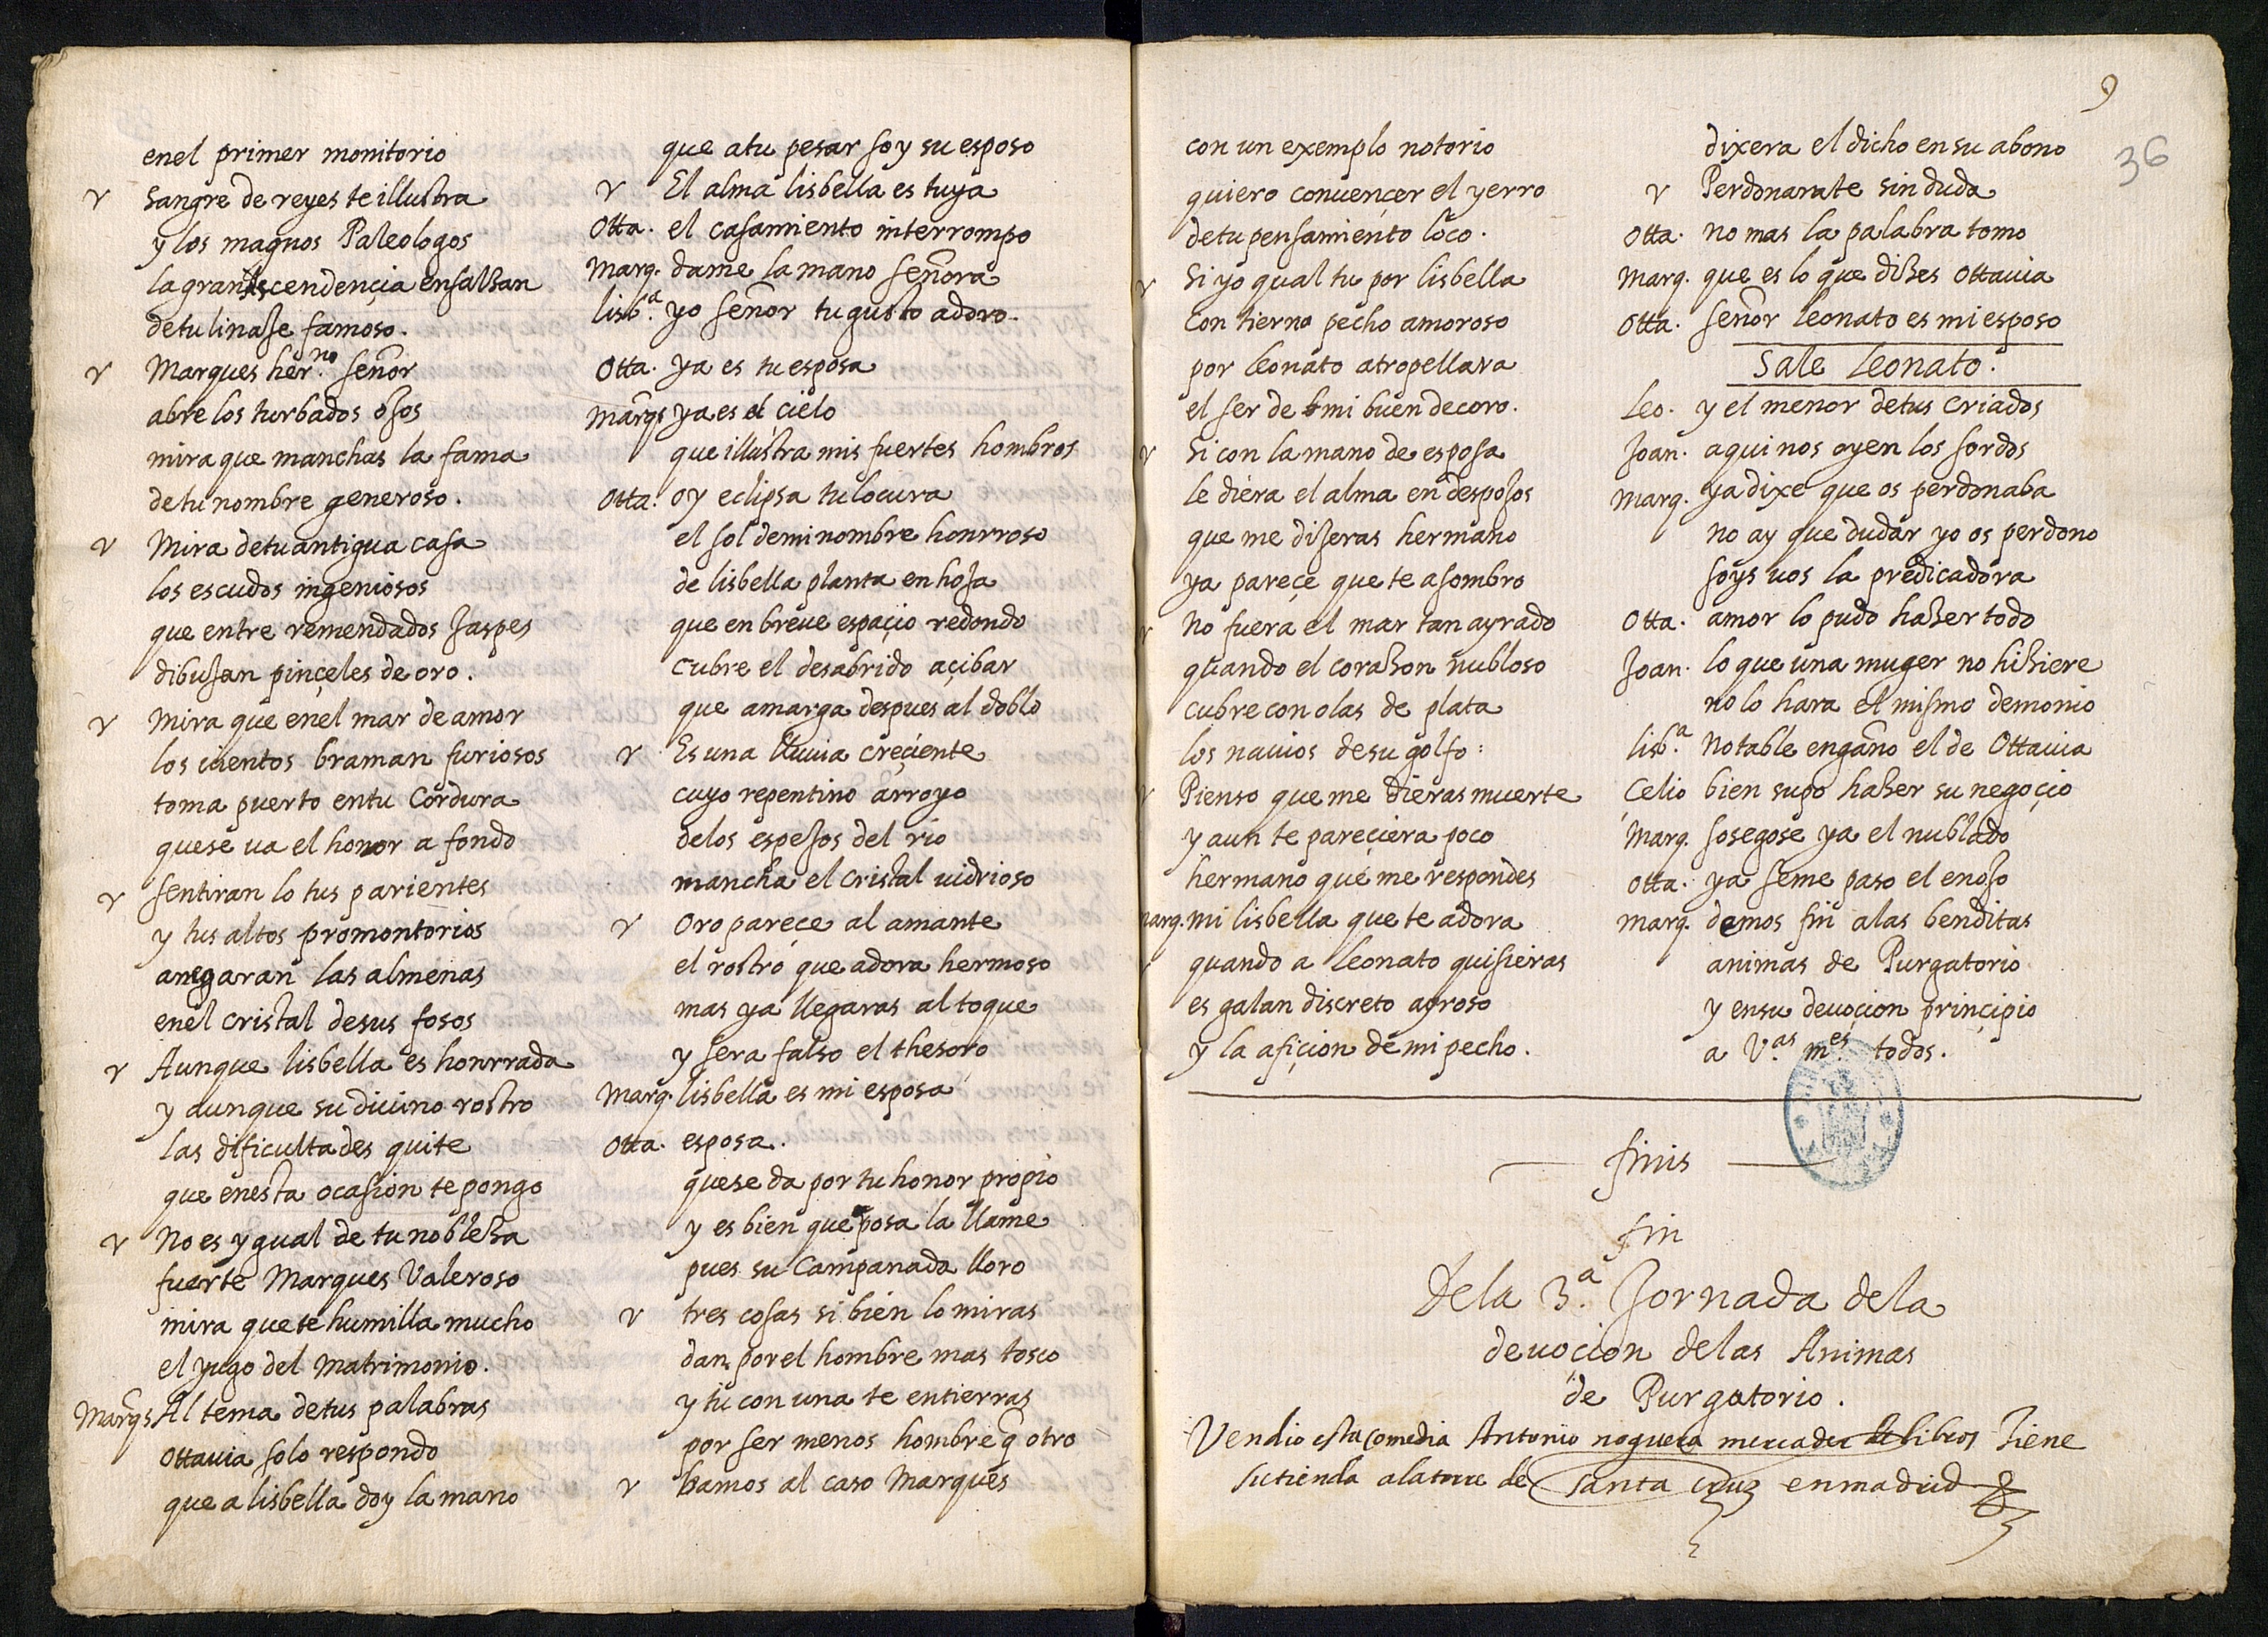 enel primer monitorio
r sangre de reyes te illustra
y los magnos Paleologos
la gran Ascendençia ensalzan
de tu linaje famoso.
r Marques her.no señor
abre los turbados ojos
mira que manchas la fama
de tu nombre generoso.
r Mira de tu antigua casa
los escudos ingeniosos
que entre remendados Jaspes
dibujan pinçeles de oro.
r mira que enel mar de amor
los uientos braman furiosos
toma puerto en tu Cordura
que se ua el honor a fondo
r sentiran lo tus parientes
y tus altos promontorios
anegaran las almenas
enel cristal de sus fosos
r Aunque lisbella es honrrada
y aunque su diuino rostro
las dificultades quite
que enesta ocasion te pongo
r No es ygual de tu nobleza
fuerte Marques Valeroso
mira que te humilla mucho
el yugo del matrimonio.
Marqs Al tema de tus palabras
Ottauia solo respondo
que a lisbella doy la mano
que a tu pesar soy su esposo
r El alma lisbella es tuya
Otta. el casamiento interrompo
Marq. dame la mano señora
lisb.a yo señor tu gusto adoro.
Otta. ya es tu esposa
Marqs ya es el cielo
que illustra mis fuertes hombros
Otta. oy eclipsa tu locura
el sol de mi nombre honrroso
de lisbella planta en hoja
que en breue espaçio redondo
cubre el desabrido açibar
que amarga despues al doblo
r Es una lluuia creçiente
cuyo repentino arroyo
delos espejos del rio
mancha el cristal uidrioso
r Oro pareçe al amante
el rostro que adora hermoso
mas ya llegaras al toque
y sera falso el thesoro
Marq. lisbella es mi esposa
Otta. esposa.
que se da por tu honor propio
y es bien que posa la llame
pues su Campanada lloro
r tres cosas si bien lo miras
dan por el hombre mas tosco
y tu con una te entierras
por ser menos hombre q̃ otro
r bamos al caso Marques
9
36
con un exemplo notorio
quiero conuençer el yerro
de tu pensamiento loco.
r Si yo qual tu por lisbella
con tierno pecho amoroso
por Leonato atropellara
el ser de mi buen decoro.
r Si con la mano de esposa
le diera el alma en despojos
que me dijeras hermano
ya pareçe que te asombro
r No fuera el mar tan ayrado
quando el corazon nubloso
cubre con olas de plata
los nauios de su golfo:
r Pienso que me dieras muerte
y aun te pareçiera poco
hermano que me respondes
marq. mi lisbella que te adora
quando a Leonato quisieras
es galan discreto ayroso
y la afiçion de mi pecho.
dixera el dicho en su abono
r Perdonarate sin duda
Otta. no mas la palabra tomo
Marq. que es lo que dizes Ottauia
Otta. señor Leonato es mi esposo
Sale Leonato.
Leo. y el menor de tus criados
Joan. aqui nos oyen los sordos
Marq. ya dixe que os perdonaba
no ay que dudar yo os perdono
soys uos la predicadora
Otta. amor lo pudo hazer todo
Joan. lo que una muger no hiziere
no lo hara el mismo demonio
lisb.a Notable engaño el de Ottauia
Celio bien supo hazer su negoçio
Marq. sosegose ya el nublado
Otta. ya se me paso el enojo
Marq. demos fin alas benditas
animas de Purgatorio
y ensu deuoçion prinçipio
a V.as m.es todos.
finis
fin
dela 3.a Jornada dela
deuocion delas Animas
de Purgatorio.
Vendio esta comedia Antonio noguera mercader de libros Tiene
su tienda ala torre de santa cruz en madrid